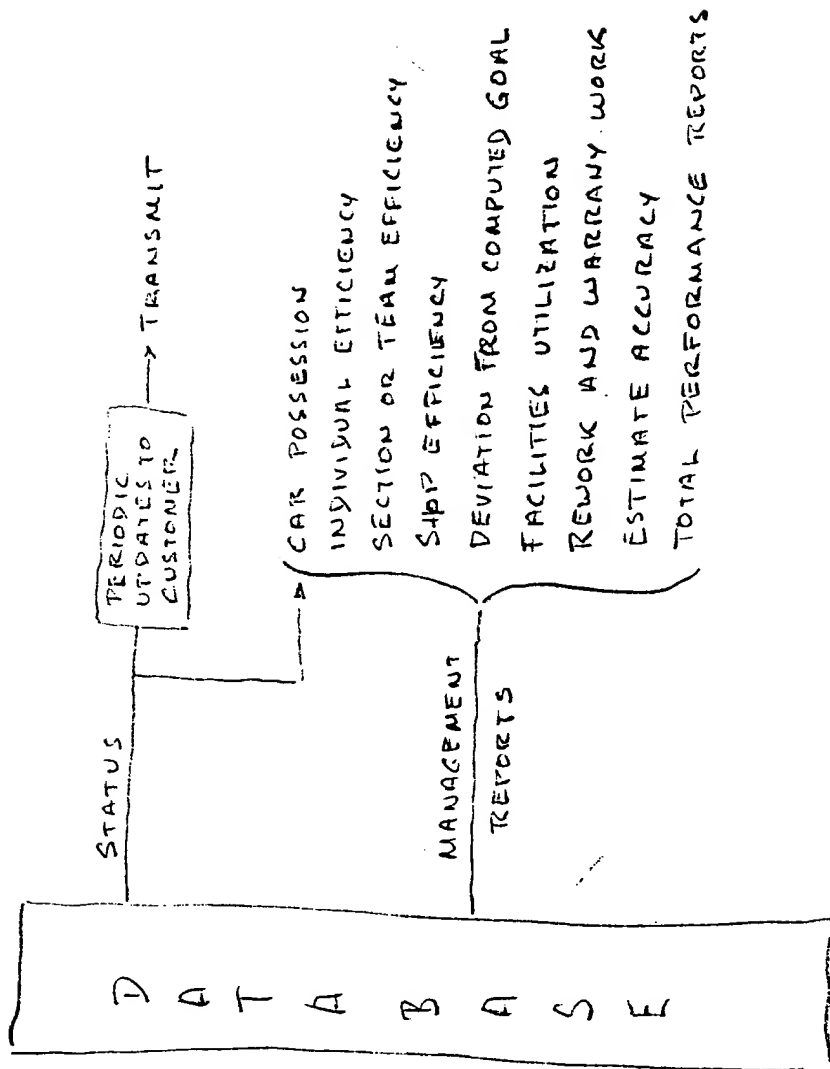 DATABASE
STATUS
PERIODIC
UPDATES TO
CUSTOMER
TRANSMIT
MANAGEMENT
REPORTS
CAR POSSESSION
INDIVIDUAL EFFICIENCY
SECTION OR TEAM EFFICIENCY
SHOP EFFICIENCY
DEVIATION FROM COMPUTED GOAL
FACILITIES UTILIZATION
REWORK AND WARRANY WORK
ESTIMATE ACCURACY
TOTAL PERFORMANCE REPORTS